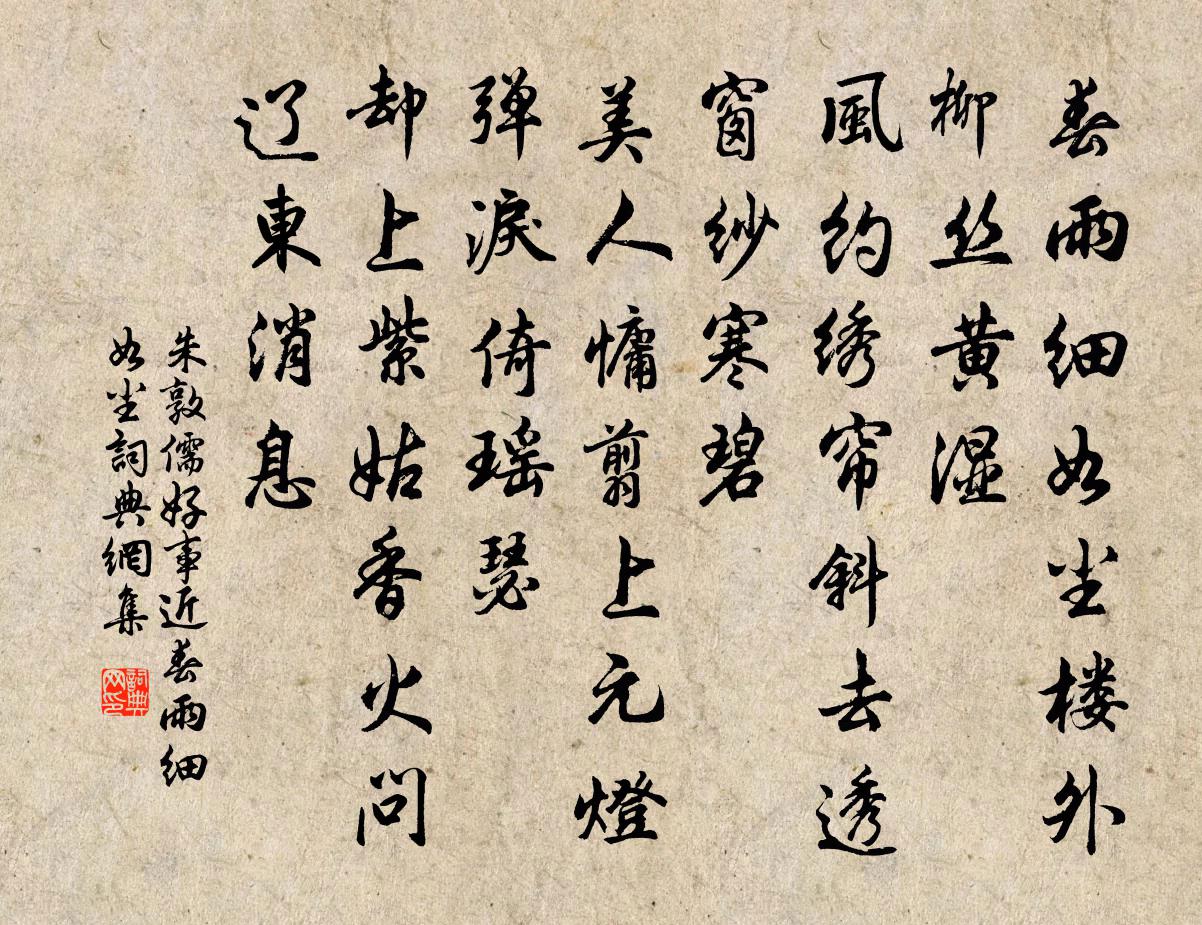 春雨細如尘楼外
柳丝黄湿
風约绣帘斜去透
窗纱寒碧
美人慵剪上元燈
弹淚倚瑶瑟
却上紫姑香火问
辽東消息
朱敦儒好事近春雨細
如尘詞典網集
詞典网印